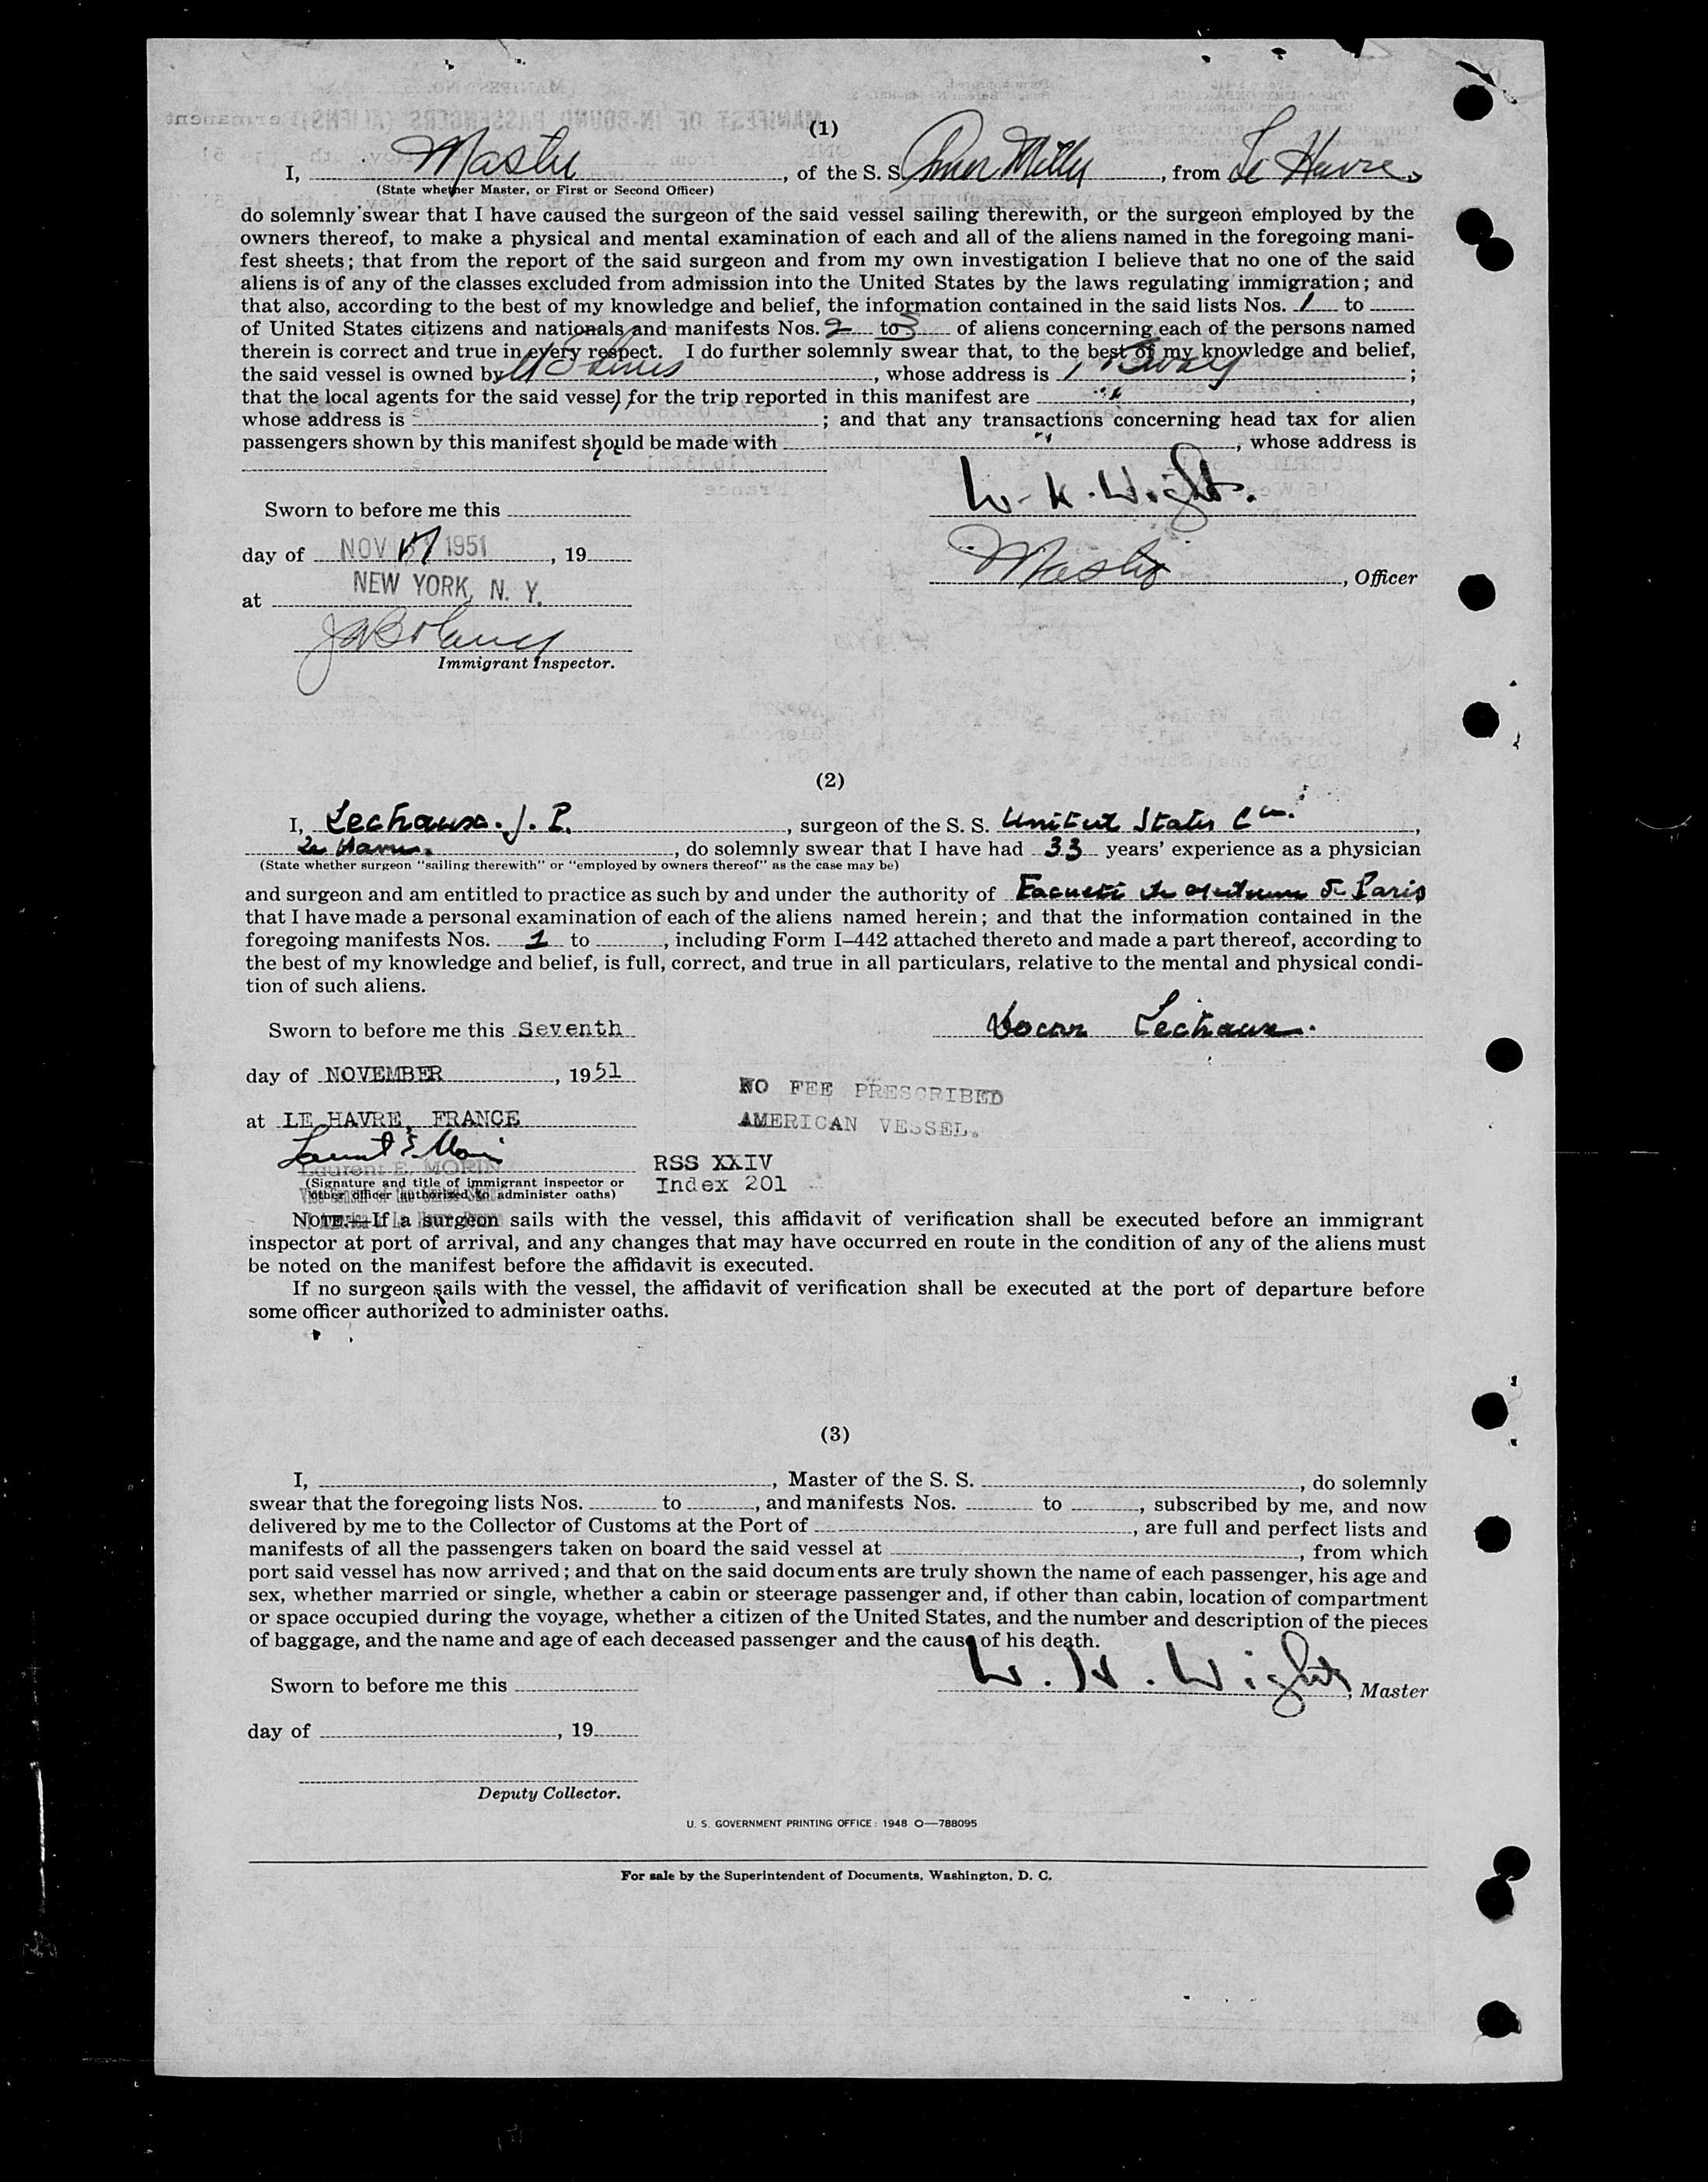 (1)
I, Master, of the S. S. Amer Miller, from Le Havre,
(State whether Master, or First or Second Officer)
do solemnly swear that I have caused the surgeon of the said vessel sailing therewith, or the surgeon employed by the
owners thereof, to make a physical and mental examination of each and all of the aliens named in the foregoing mani-
fest sheets; that from the report of the said surgeon and from my own investigation I believe that no one of the said
aliens is of any of the classes excluded from admission into the United States by the laws regulating immigration; and
that also, according to the best of my knowledge and belief, the information contained in the said lists Nos. 1 to
of United States citizens and nationals and manifests Nos. 2 to 3 of aliens concerning each of the persons named
therein is correct and true in every respect. I do further solemnly swear that, to the best of my knowledge and belief,
the said vessel is owned by U S Lines, whose address is 1 Bway;
that the local agents for the said vessel for the trip reported in this manifest are " ,
whose address is ; and that any transactions concerning head tax for alien
passengers shown by this manifest should be made with " , whose address is
W. K. Wight.
Sworn to before me this
day of NOV 17 1951, 19
Master, Officer
at NEW YORK, N. Y.
Immigrant Inspector.
(2)
I, Lechaux. J. P., surgeon of the S. S. United States Cie.,
Le Havre., do solemnly swear that I have had 33 years' experience as a physician
(State whether surgeon "sailing therewith" or "employed by owners thereof" as the case may be)
and surgeon and am entitled to practice as such by and under the authority of Faculté de Paris
that I have made a personal examination of each of the aliens named herein; and that the information contained in the
foregoing manifests Nos. 1 to , including Form I–442 attached thereto and made a part thereof, according to
the best of my knowledge and belief, is full, correct, and true in all particulars, relative to the mental and physical condi-
tion of such aliens.
Sworn to before me this Seventh
Lechaux.
day of NOVEMBER, 1951
NO FEE PRESCRIBED
at LE HAVRE, FRANCE
AMERICAN VESSEL.
Laurent E. MORIN
RSS XXIV
(Signature and title of immigrant inspector or
Index 201
other officer authorized to administer oaths)
NOTE.—If a surgeon sails with the vessel, this affidavit of verification shall be executed before an immigrant
inspector at port of arrival, and any changes that may have occurred en route in the condition of any of the aliens must
be noted on the manifest before the affidavit is executed.
If no surgeon sails with the vessel, the affidavit of verification shall be executed at the port of departure before
some officer authorized to administer oaths.
(3)
I, , Master of the S. S. , do solemnly
swear that the foregoing lists Nos. to , and manifests Nos. to , subscribed by me, and now
delivered by me to the Collector of Customs at the Port of , are full and perfect lists and
manifests of all the passengers taken on board the said vessel at , from which
port said vessel has now arrived; and that on the said documents are truly shown the name of each passenger, his age and
sex, whether married or single, whether a cabin or steerage passenger and, if other than cabin, location of compartment
or space occupied during the voyage, whether a citizen of the United States, and the number and description of the pieces
of baggage, and the name and age of each deceased passenger and the cause of his death.
Sworn to before me this
W. K. Wight, Master
day of , 19
Deputy Collector.
U. S. GOVERNMENT PRINTING OFFICE: 1948 O—788095
For sale by the Superintendent of Documents, Washington, D. C.